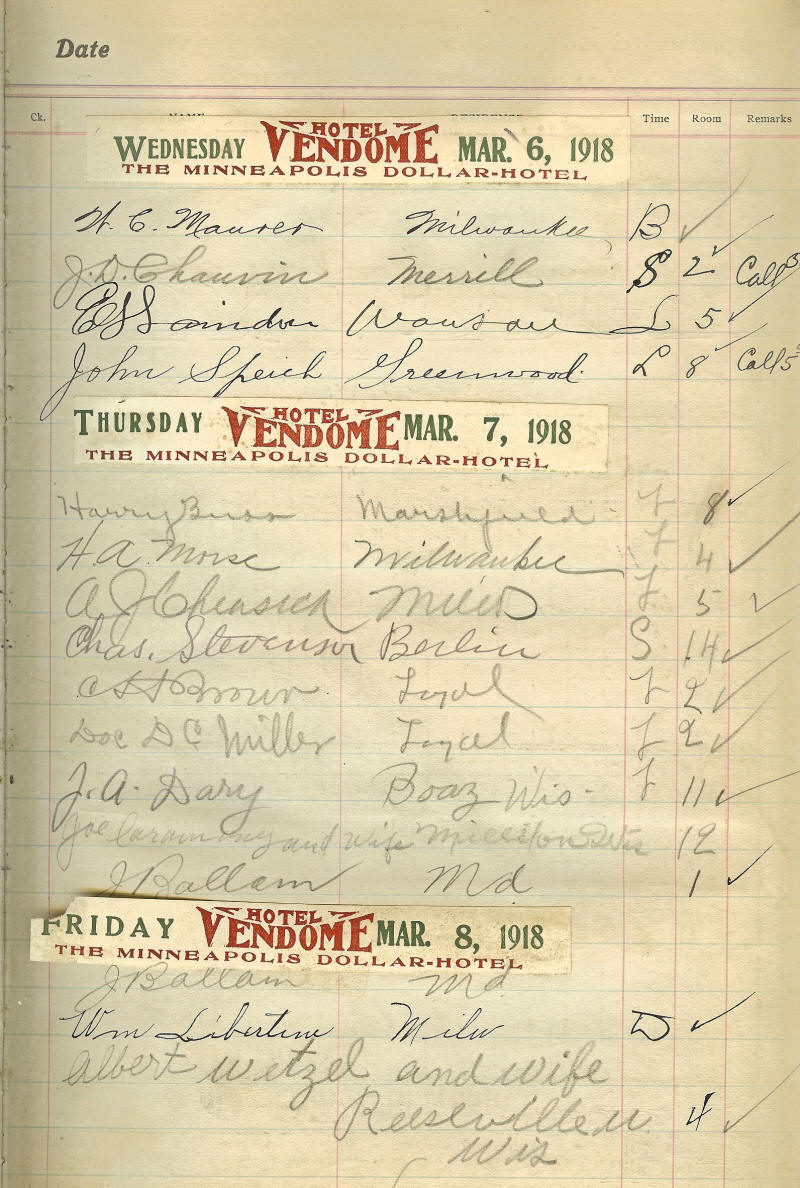 Date
Ck. NAME RESIDENCE Time Room Remarks
WEDNESDAY HOTEL VENDOME MAR. 6, 1918
THE MINNEAPOLIS DOLLAR-HOTEL
W. C. Maurer Milwaukee B ✓
J. D. Chauvin Merrill S 2 ✓ Call 5
Wausau L 5 ✓
John Speich Greenwood. L 8 ✓ Call 5
THURSDAY HOTEL VENDOME MAR. 7, 1918
THE MINNEAPOLIS DOLLAR-HOTEL
Harry Buss Marshfield L 8 ✓
H. A. Morse Milwaukee L 4 ✓
A J L 5 ✓
Chas. Stevenson Berlin S. 14 ✓
Brown Loyal L 2 ✓
Doc D C Miller Loyal L 2 ✓
J. A. Dary Boaz Wis - L 11 ✓
Joe and wife Wis 12
J Ballam Md 1 ✓
FRIDAY HOTEL VENDOME MAR. 8, 1918
THE MINNEAPOLIS DOLLAR-HOTEL
J Ballam Md
Wm Libertine Milw D ✓
Albert Wetzel and wife
Reeseville 4 ✓
Wis